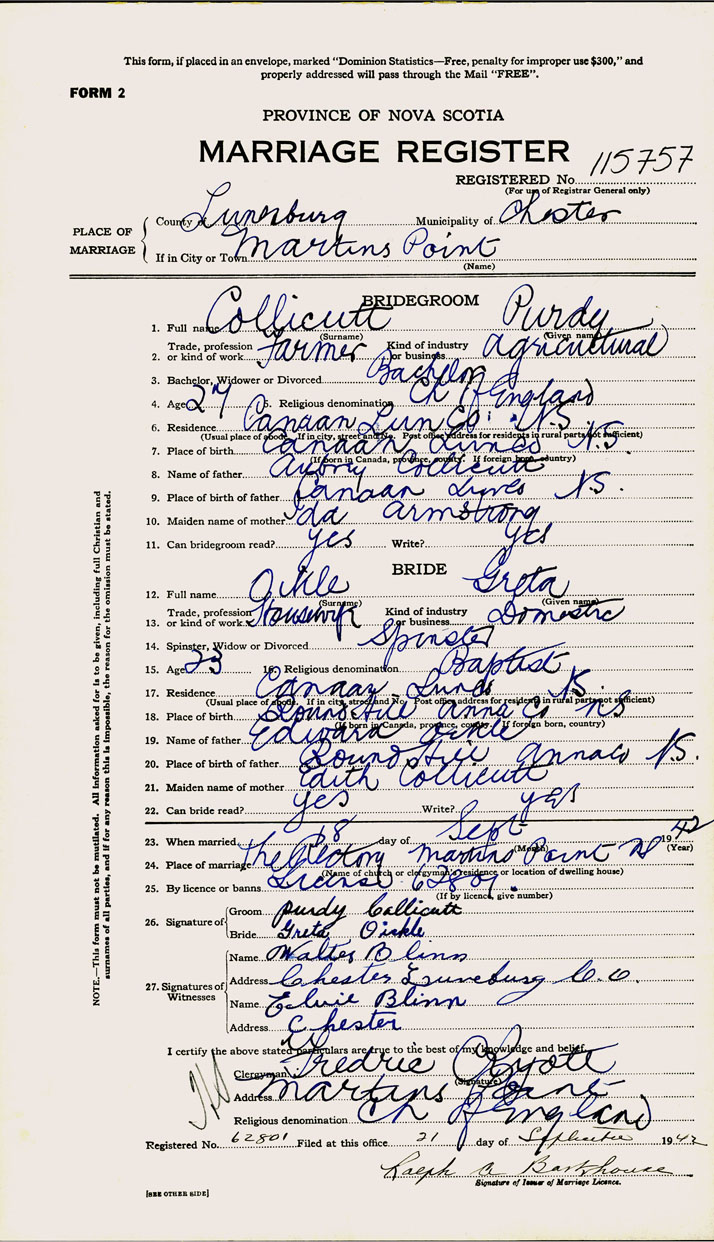 This form, if placed in an envelope, marked "Dominion Statistics—Free, penalty for improper use $300," and
properly addressed will pass through the Mail "FREE".
FORM 2
PROVINCE OF NOVA SCOTIA
MARRIAGE REGISTER
REGISTERED No. 115757
(For use of Registrar General only)
PLACE OF MARRIAGE
County of Lunenburg Municipality of Chester
If in City or Town Martins Point
(Name)
BRIDEGROOM
1. Full name Collicutt Purdy
(Surname) (Given name)
2. Trade, profession or kind of work Farmer Kind of industry or business Agricultural
3. Bachelor, Widower or Divorced Bachelor
4. Age 27 5. Religious denomination Ch of England
6. Residence Canaan Lun Co. N.S
(Usual place of abode. If in city, street and No. Post office address for residents in rural parts not sufficient)
7. Place of birth Canaan N.S
(If born in Canada, province, county. If foreign born, country)
8. Name of father Collicutt
9. Place of birth of father Canaan N.S.
10. Maiden name of mother Ida Armstrong
11. Can bridegroom read? yes Write? yes
BRIDE
12. Full name Oikle Greta
(Surname) (Given name)
13. Trade, profession or kind of work Housewife Kind of industry or business Domestic
14. Spinster, Widow or Divorced Spinster
15. Age 23 16. Religious denomination Baptist
17. Residence Canaan N.S.
(Usual place of abode. If in city, street and No. Post office address for residents in rural parts not sufficient)
18. Place of birth Round Hill Anna Co NS
(If born in Canada, province, county. If foreign born, country)
19. Name of father Edward Oikle
20. Place of birth of father Round Hill Anna Co N.S.
21. Maiden name of mother Edith Collicutt
22. Can bride read? yes Write? yes
23. When married 18 day of Sept 1942
(Month) (Year)
24. Place of marriage The Rectory Martins Point NS
(Name of church or clergyman's residence or location of dwelling house)
25. By licence or banns 62801
(If by licence, give number)
26. Signature of
Groom Purdy Collicutt
Bride Greta Oickle
27. Signatures of Witnesses
Name Walter Blinn
Address Chester Lunenburg C.O.
Name Elsie Blinn
Address Chester
I certify the above stated particulars are true to the best of my knowledge and belief.
Clergyman Fredric
(Signature)
Address Martins Point
Religious denomination Ch of England
Registered No. 62801 Filed at this office 21 day of September 1942
Ralph A Barkhouse
Signature of Issuer of Marriage Licence.
[SEE OTHER SIDE]
NOTE.—This form must not be mutilated. All information asked for is to be given, including full Christian and
surnames of all parties, and if for any reason this is impossible, the reason for the omission must be stated.